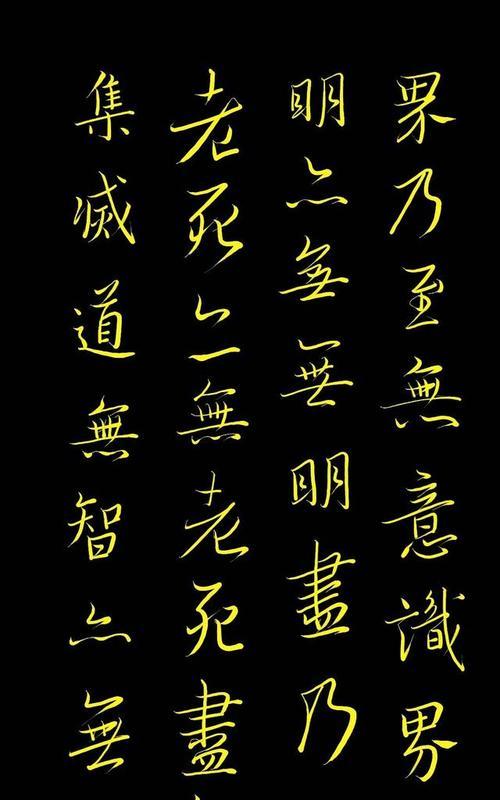 界乃至無意識界
明亦無無明盡乃
老死亦無老死盡
集滅道無智亦無